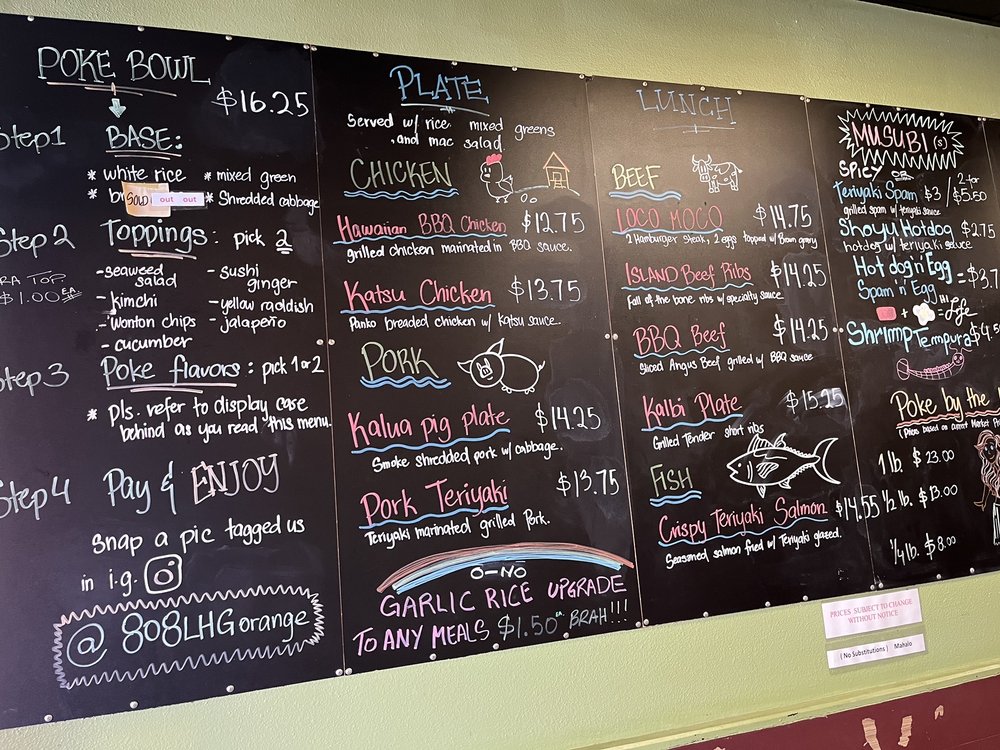 POKE BOWL
$16.25
Step 1
BASE:
* white rice * mixed green
* b SOLD out out * Shredded cabbage
Step 2 Toppings: pick 2
RA TOP
$1.00 EA.
- seaweed salad
- kimchi
- wonton chips
- cucumber
- sushi ginger
- yellow raddish
- jalapeño
Step 3 Poke flavors: pick 1 or 2
* pls. refer to display case
behind as you read this menu.
Step 4 Pay & ENJOY
Snap a pic tagged us
in i.g.
@ 808LHGorange
PLATE
Served w/ rice mixed greens
and mac salad.
CHICKEN
Hawaiian BBQ Chicken $12.75
grilled chicken marinated in BBQ sauce.
Katsu Chicken $13.75
Panko breaded chicken w/ Katsu sauce.
PORK
Kalua pig plate $14.25
Smoke shredded pork w/ cabbage.
Pork Teriyaki $13.75
Teriyaki marinated grilled Pork.
O-NO
GARLIC RICE UPGRADE
TO ANY MEALS $1.50 EA. BRAH!!!
LUNCH
BEEF
LOCO MOCO $14.75
2 Hamburger steak, 2 eggs topped w/ Brown gravy
ISLAND Beef Ribs $14.25
Fall of the bone ribs w/ specialty sauce
BBQ Beef $14.25
Sliced Angus Beef grilled w/ BBQ sauce
Kalbi Plate $15.25
Grilled Tender short ribs
FISH
Crispy Teriyaki Salmon $14.55
Seasoned salmon fried w/ Teriyaki glazed.
MUSUBI (s)
SPICY OR
Teriyaki Spam $3 / 2 for $5.50
grilled spam w/ teriyaki sauce
Shoyu Hotdog $2.75
hotdog w/ teriyaki sauce
Hot dog 'n' Egg
Spam 'n' Egg = $3.7
+ = HI Life
Shrimp Tempura $4.5
Poke by the
(Prices based on current Market
1 lb. $23.00
1/2 lb. $13.00
1/4 lb. $8.00
PRICES SUBJECT TO CHANGE
WITHOUT NOTICE
(No Substitutions) Mahalo